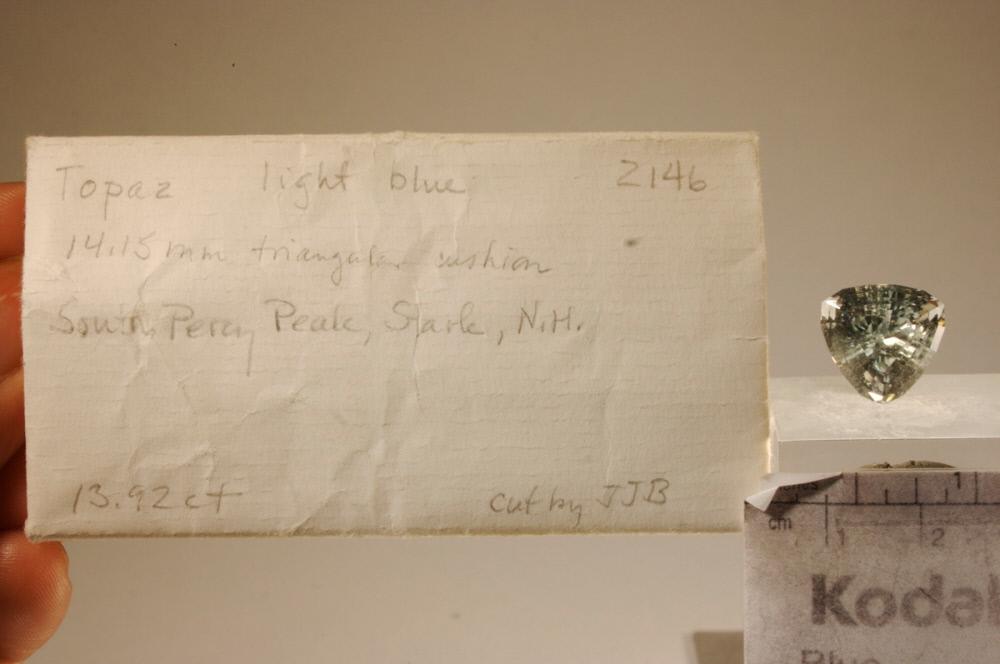 Topaz light blue 2146
14.15 mm triangular cushion
South Percy Peak, Stark, N.H.
13.92 ct cut by JJB
1
cm 1 2
Kodak